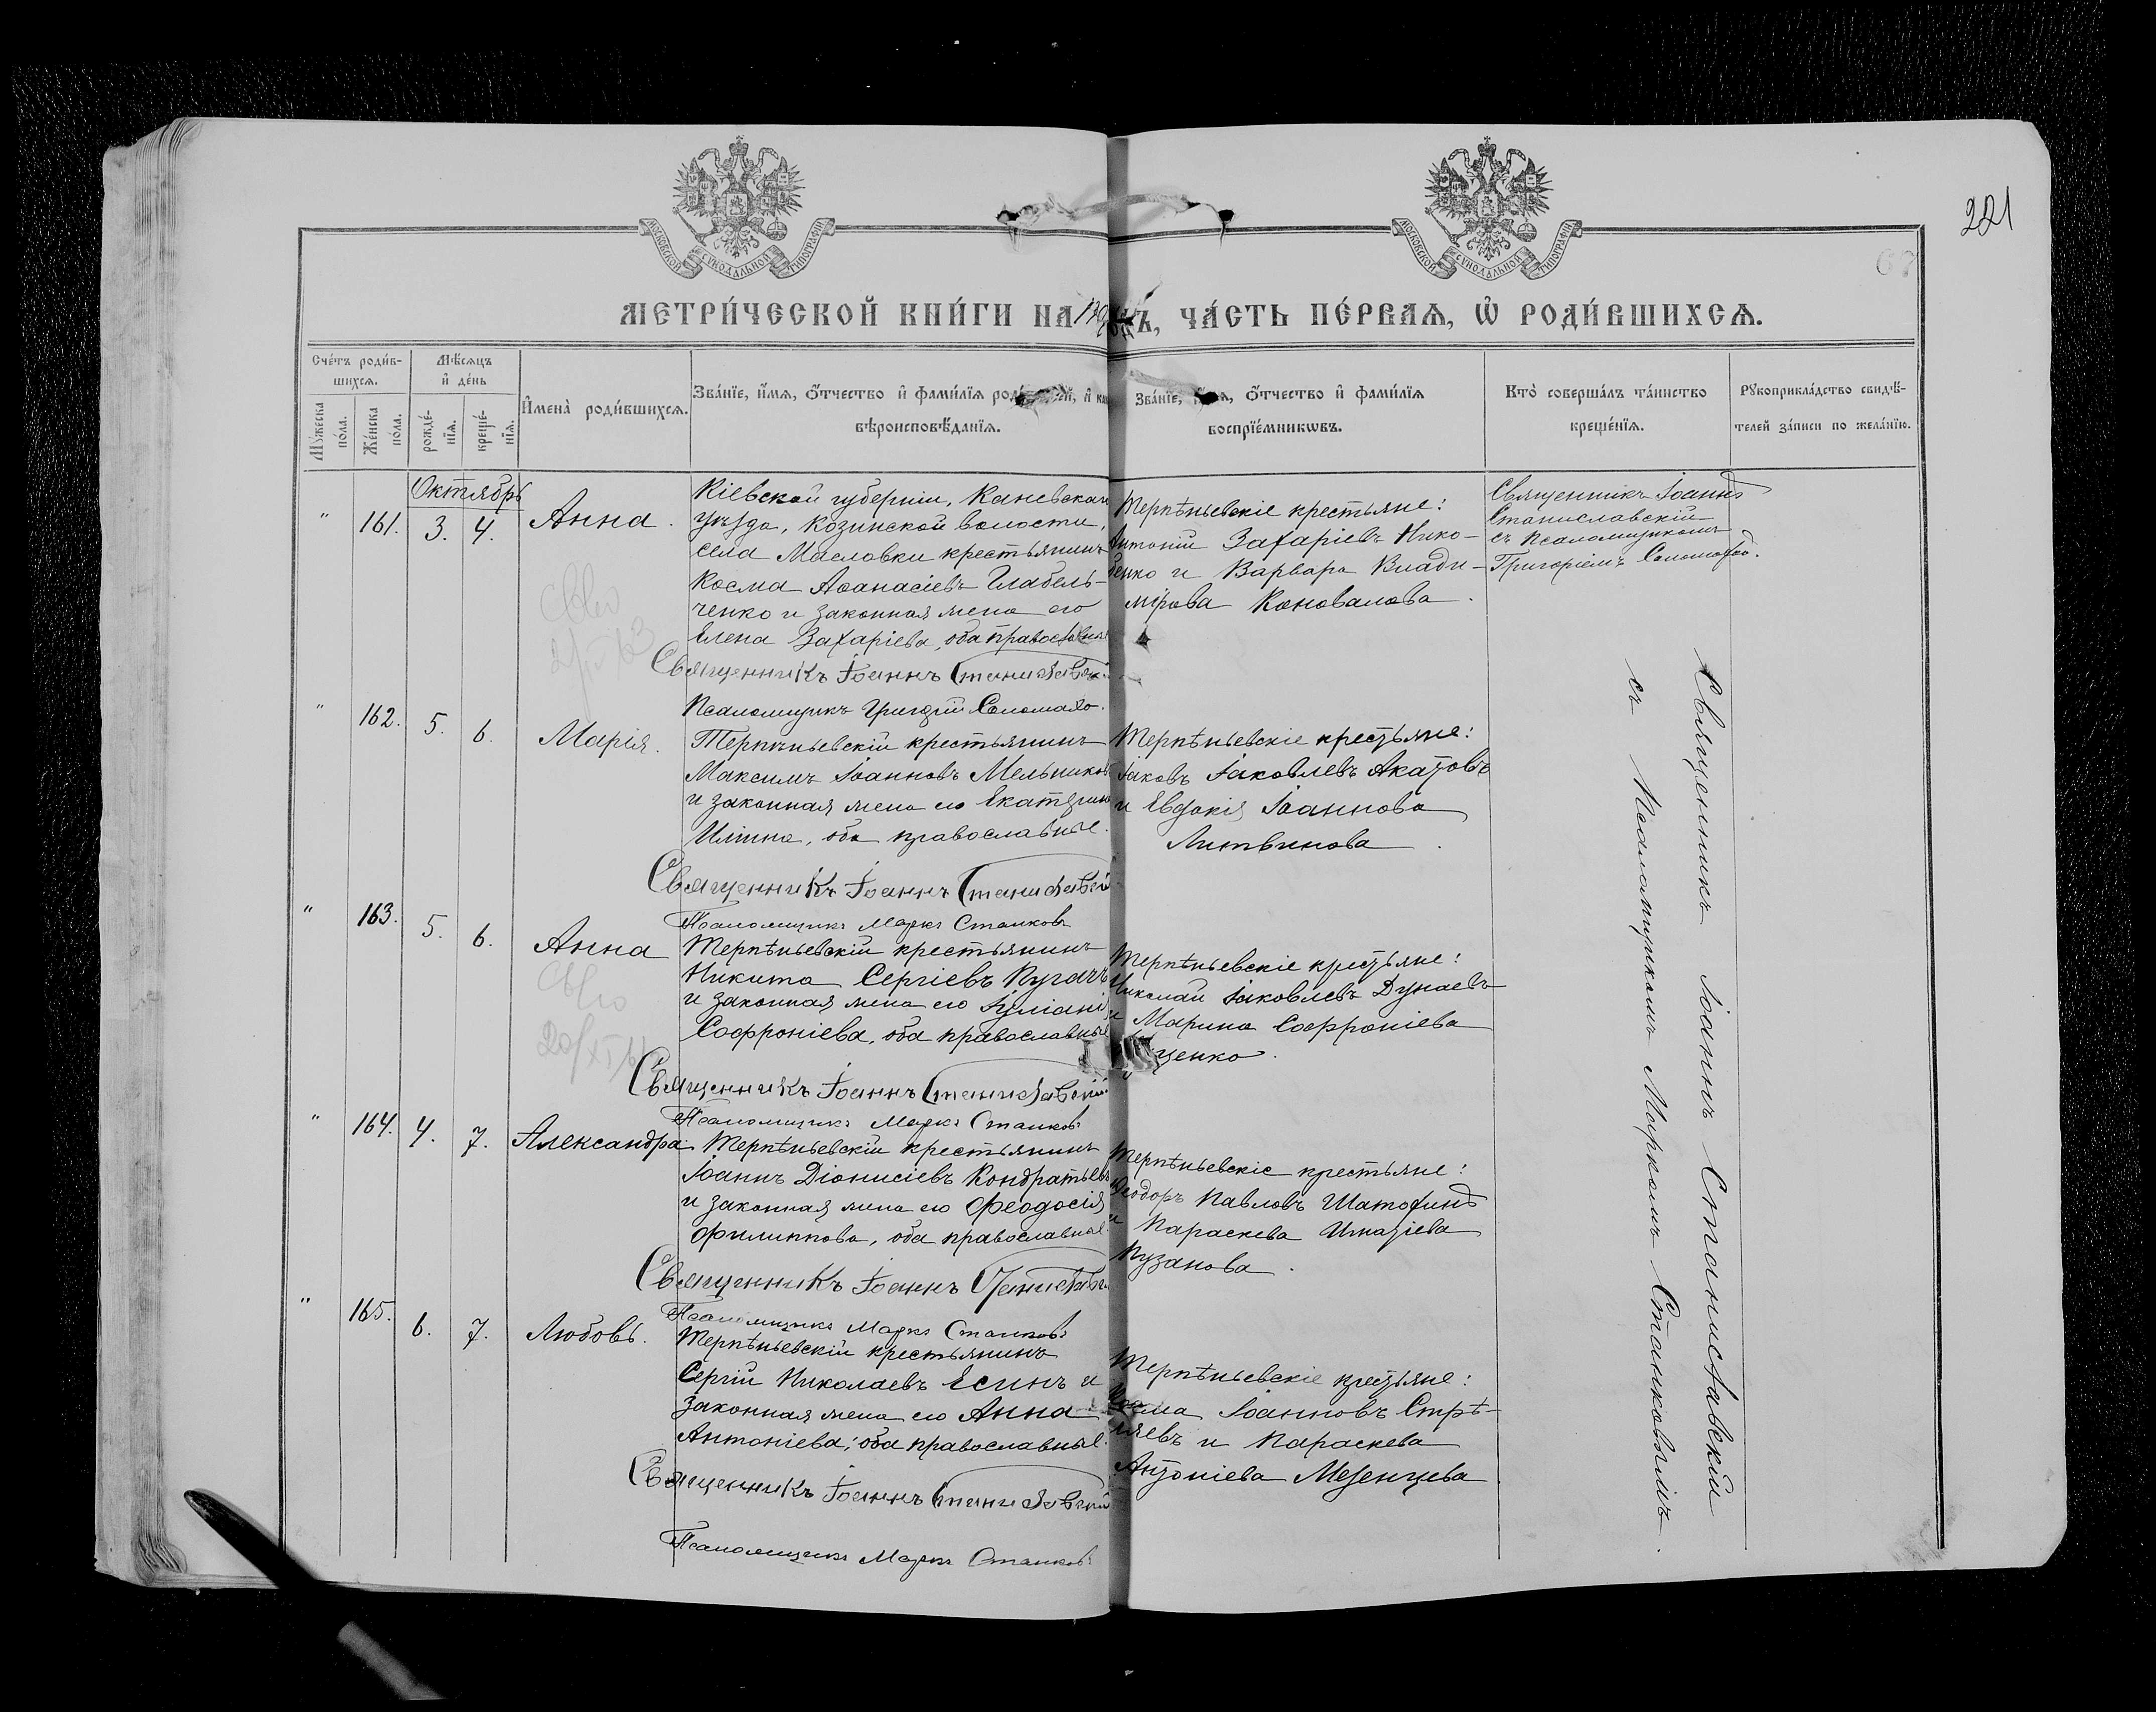 221
67
МОСКОВСКОЙ СѴНОДАЛЬНОЙ ТИПОГРАФІИ
МОСКОВСКОЙ СѴНОДАЛЬНОЙ ТИПОГРАФІИ
МЕТРИ́ЧЕСКОЙ КНИ́ГИ НА ЧА́СТЬ ПЕ́РВАѦ, Ѡ҆ РОДИ́ВШИХСѦ.
Сче́тъ роди́в-
шихсѧ.
Мꙋ́жеска по́ла.
Же́нска по́ла.
Мѣ́сѧцъ
и҆ де́нь
рожде́-
нїѧ.
креще́-
нїѧ.
И҆мена̀ роди́вшихсѧ.
Зва́нїе, и҆́мѧ, ѻ҆́тчество и҆ фамі́лїѧ
вѣроисповѣ́данїѧ.
Зва́нїе, ѻ҆́тчество и҆ фамі́лїѧ
воспрїе́мникѡвъ.
Кто̀ соверша́лъ та́инство
креще́нїѧ.
Рꙋкоприкла́дство свидѣ́-
телей за́писи по жела́нїю.
Октябрь
" 161. 3. 4. Анна.
Кіевской губерніи, Каневскаго
уѣзда, Козинской волости,
села Масловки крестьянинъ
Косма Аѳанасіевъ Глабель-
ченко и законная жена его
Елена Захаріева, оба православные
Священникъ Іоаннъ Станиславскій
Псаломщикъ Григорій Соломахо.
Терпѣньевскіе крестьяне:
Антоній Захаріевъ Нико-
ленко и Варвара Влади-
мірова Коновалова.
Священникъ Іоаннъ
Станиславскій
съ Псаломщикомъ
Григоріемъ Соломахой.
" 162. 5. 6. Марія.
Терпѣньевскій крестьянинъ
Максимъ Іоанновъ Мельниковъ
и законная жена его Екатерина
Иліина, оба православные.
Священникъ Іоаннъ Станиславскій
Псаломщикъ Маркъ Станковъ
Терпѣньевскіе крестьяне:
Іаковъ Іаковлевъ Акатовъ
и Евдокія Іоаннова
Литвинова.
" 163. 5. 6. Анна
Терпѣньевскій крестьянинъ
Никита Сергіевъ Пугачъ
и законная жена его Іуліанія
Софроніева, оба православные
Священникъ Іоаннъ Станиславскій
Псаломщикъ Маркъ Станковъ
Терпѣньевскіе крестьяне:
Николай Іаковлевъ Дунаевъ
и Марина Софроніева
ценко.
" 164. 4. 7. Александра.
Терпѣньевскій крестьянинъ
Іоаннъ Діонисіевъ Кондратьевъ
и законная жена его Феодосія
Филиппова, оба православные.
Священникъ Іоаннъ Станиславскій
Псаломщикъ Маркъ Станковъ
Терпѣньевскіе крестьяне:
Ѳеодоръ Павловъ Шатохинъ
и Параскева Игнатіева
Пузанова.
" 165. 6. 7. Любовь.
Терпѣньевскій крестьянинъ
Сергій Николаевъ Есинъ и
законная жена его Анна
Антоніева, оба православные.
Священникъ Іоаннъ Станиславскій
Псаломщикъ Маркъ Станковъ
Терпѣньевскіе крестьяне:
Іоанновъ Стрѣ-
ляевъ и Параскева
Антоніева Мезенцева
Священникъ Іоаннъ Станиславскій
съ Псаломщикомъ Маркомъ Станковымъ.